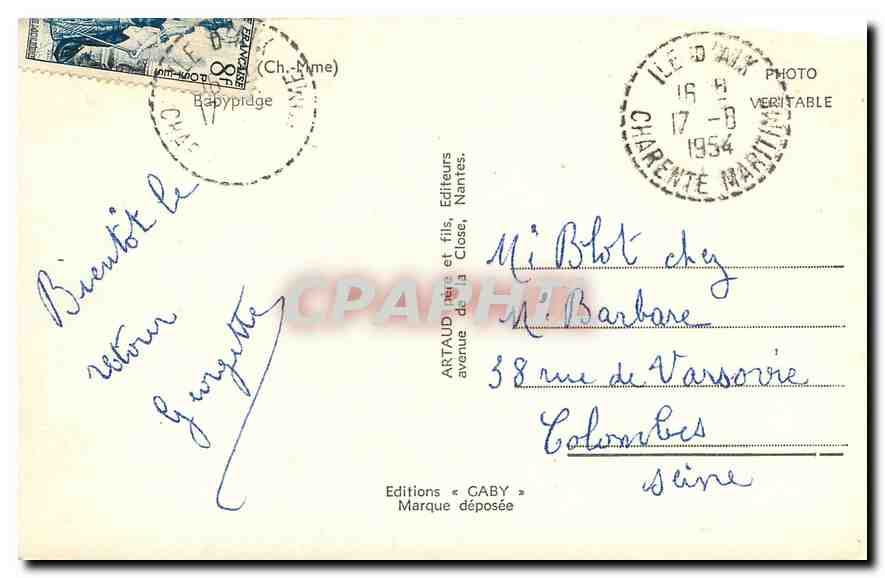 FRANÇAISE
8F
POSTES
ILE D'AIX
16
17
CHA
IME
(Ch.-Mme)
Babyplage
ILE D'AIX
16 H
17 - 8
1954
CHARENTE MARITIME
PHOTO
VERITABLE
Bientôt le
retour
Georgette
ARTAUD père et fils, Editeurs
avenue de la Close, Nantes.
CPAPHIL
Mr Blot chez
Mr Barbare
38 rue de Varsovie
Colombes
Seine
Editions « GABY »
Marque déposée